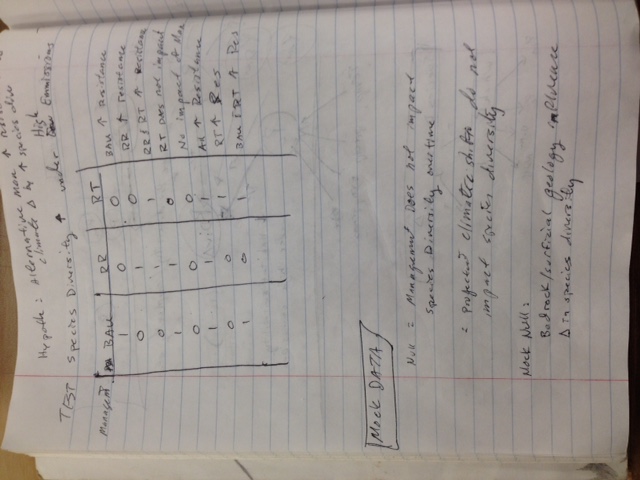 Hypoth: Alternative Man ↑ resist
climate Δ by ↑ species dive
TBT Species Diversity ↑ under High Emmissions
Managemt BAU RR RT
1 0 0 BAU ↑ resistance
0 1 0 RR ↑ resistance
0 1 1 RR & RT ↑ Resistance
1 1 0 RT Does not impact
0 0 0 No impact of Man
1 1 1 All ↑ Resistance
0 0 1 RT ↑ Res
1 0 1 BAU & RT ↑ Res
Mock DATA
Null = Management Does not impact
Species Diversity overtime
= Projected climate shifts do not
impact species diversity
Mock Null:
Bedrock/surficial geology influence
Δ in species diversity